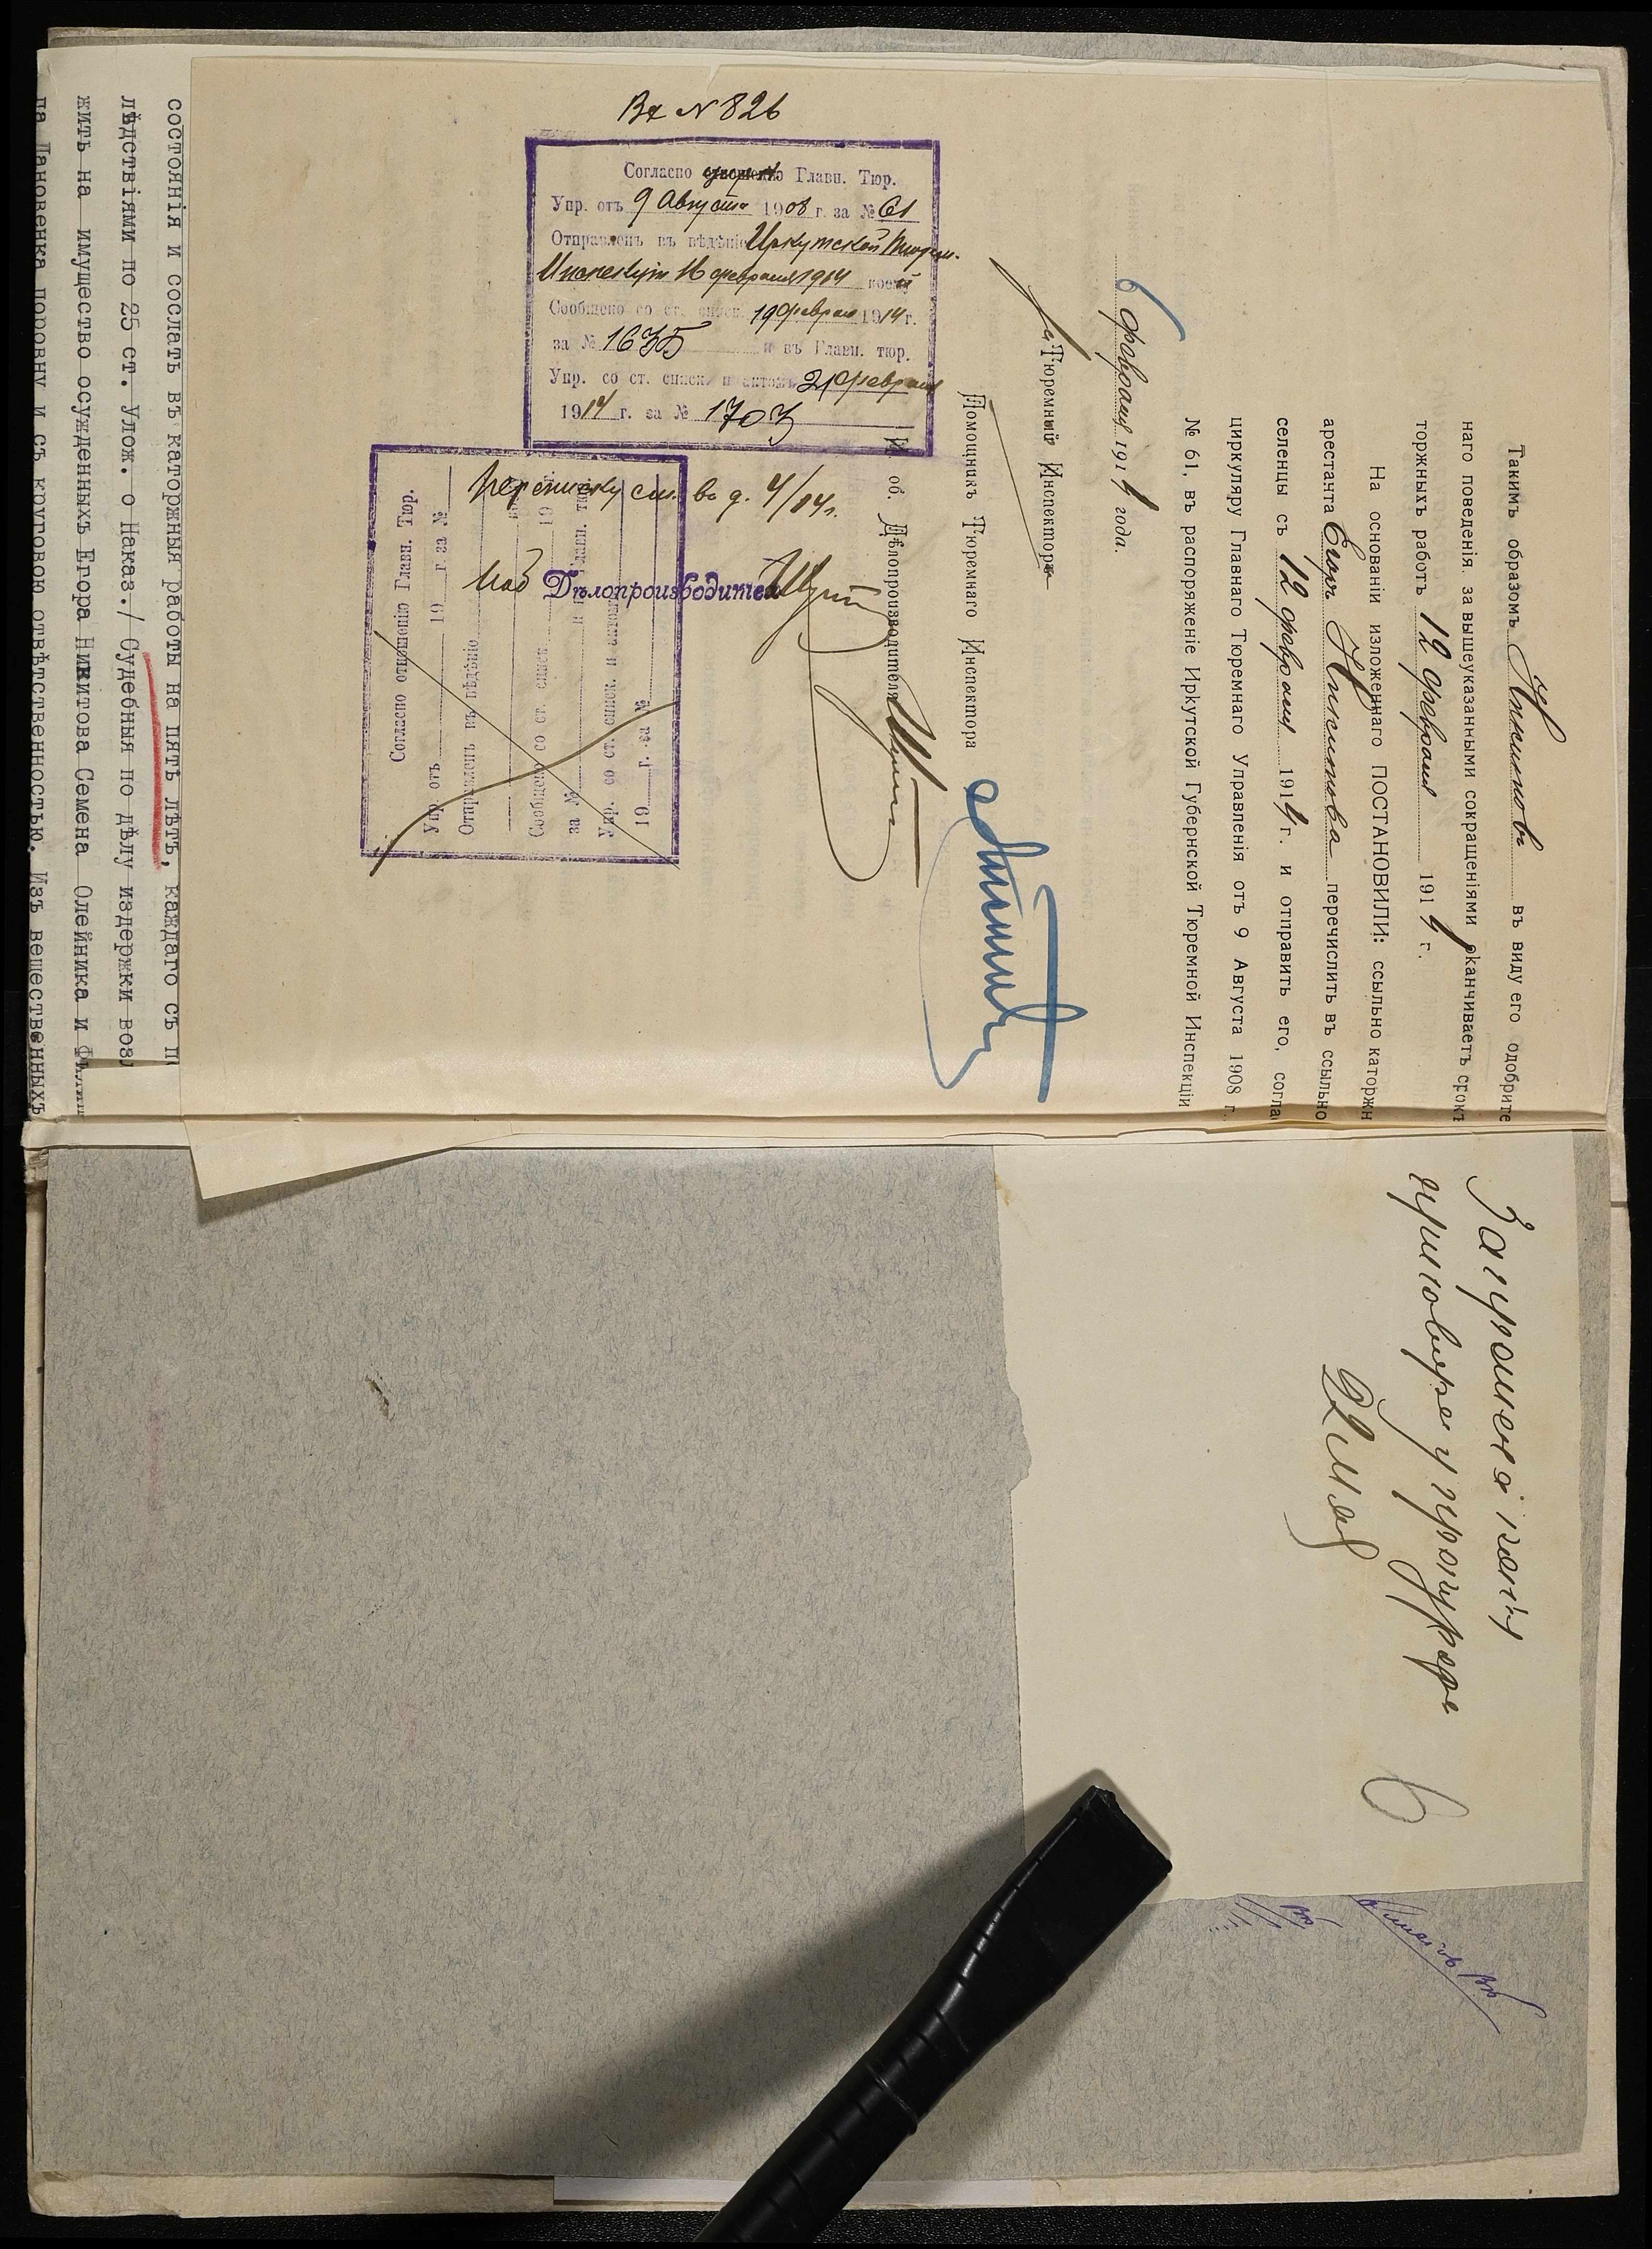 Такимъ образомъ Никитовъ въ виду его одобрите
наго поведенія за вышеуказанными сокращеніями оканчиваетъ срокъ
торжныхъ работъ 12 февраля 1914 г.
На основаніи изложеннаго ПОСТАНОВИЛИ: ссыльно каторжн
арестанта Егора Никитова перечислить въ ссыльно
селенцы съ 12 февраля 1914 г. и отправить его, согла
циркуляру Главнаго Тюремнаго Управленія отъ 9 Августа 1908 г.
№ 61, въ распоряженіе Иркутской Губернской Тюремной Инспекціи
6 февраля 1914 года.
За Тюремный Инспекторъ
Помощникъ Тюремнаго Инспектора
И. об. Дѣлопроизводителя
Вх N 826
Согласно Главн. Тюр.
Упр. отъ 9 Августа 1908 г. за № 61
Отправленъ въ вѣдѣніе Иркутской Тюрем.
Инспекціи 16 февраля 1914
Сообщено со ст. списк. 19 февраля 1914 г.
за № 1635 и въ Главн. тюр.
Упр. со ст. списк. и актомъ 21 февраля
1914 г. за № 1703
Переписку см. въ д. 4/14 г.
Дѣлопроизводитель
Согласно отношенію Главн. Тюр.
Упр. отъ 19 г. за №
Отправленъ въ вѣдѣніе
Сообщено со ст. списк. 19
за № и въ Главн. тюр.
Упр. со ст. списк. и актомъ
19 г. за №
состоянія и сослать въ каторжныя работы на пять лѣтъ, каждаго съ п
лѣдствіями по 25 ст. Улож. о Наказ./ Судебныя по дѣлу издержки возл
жить на имущество осужденныхъ Егора Никитова Семена Олейника и Фи
па Пановенка поровну и съ круговою отвѣтственностью. Изъ вещественныхъ
приговоръ у прокурора
6